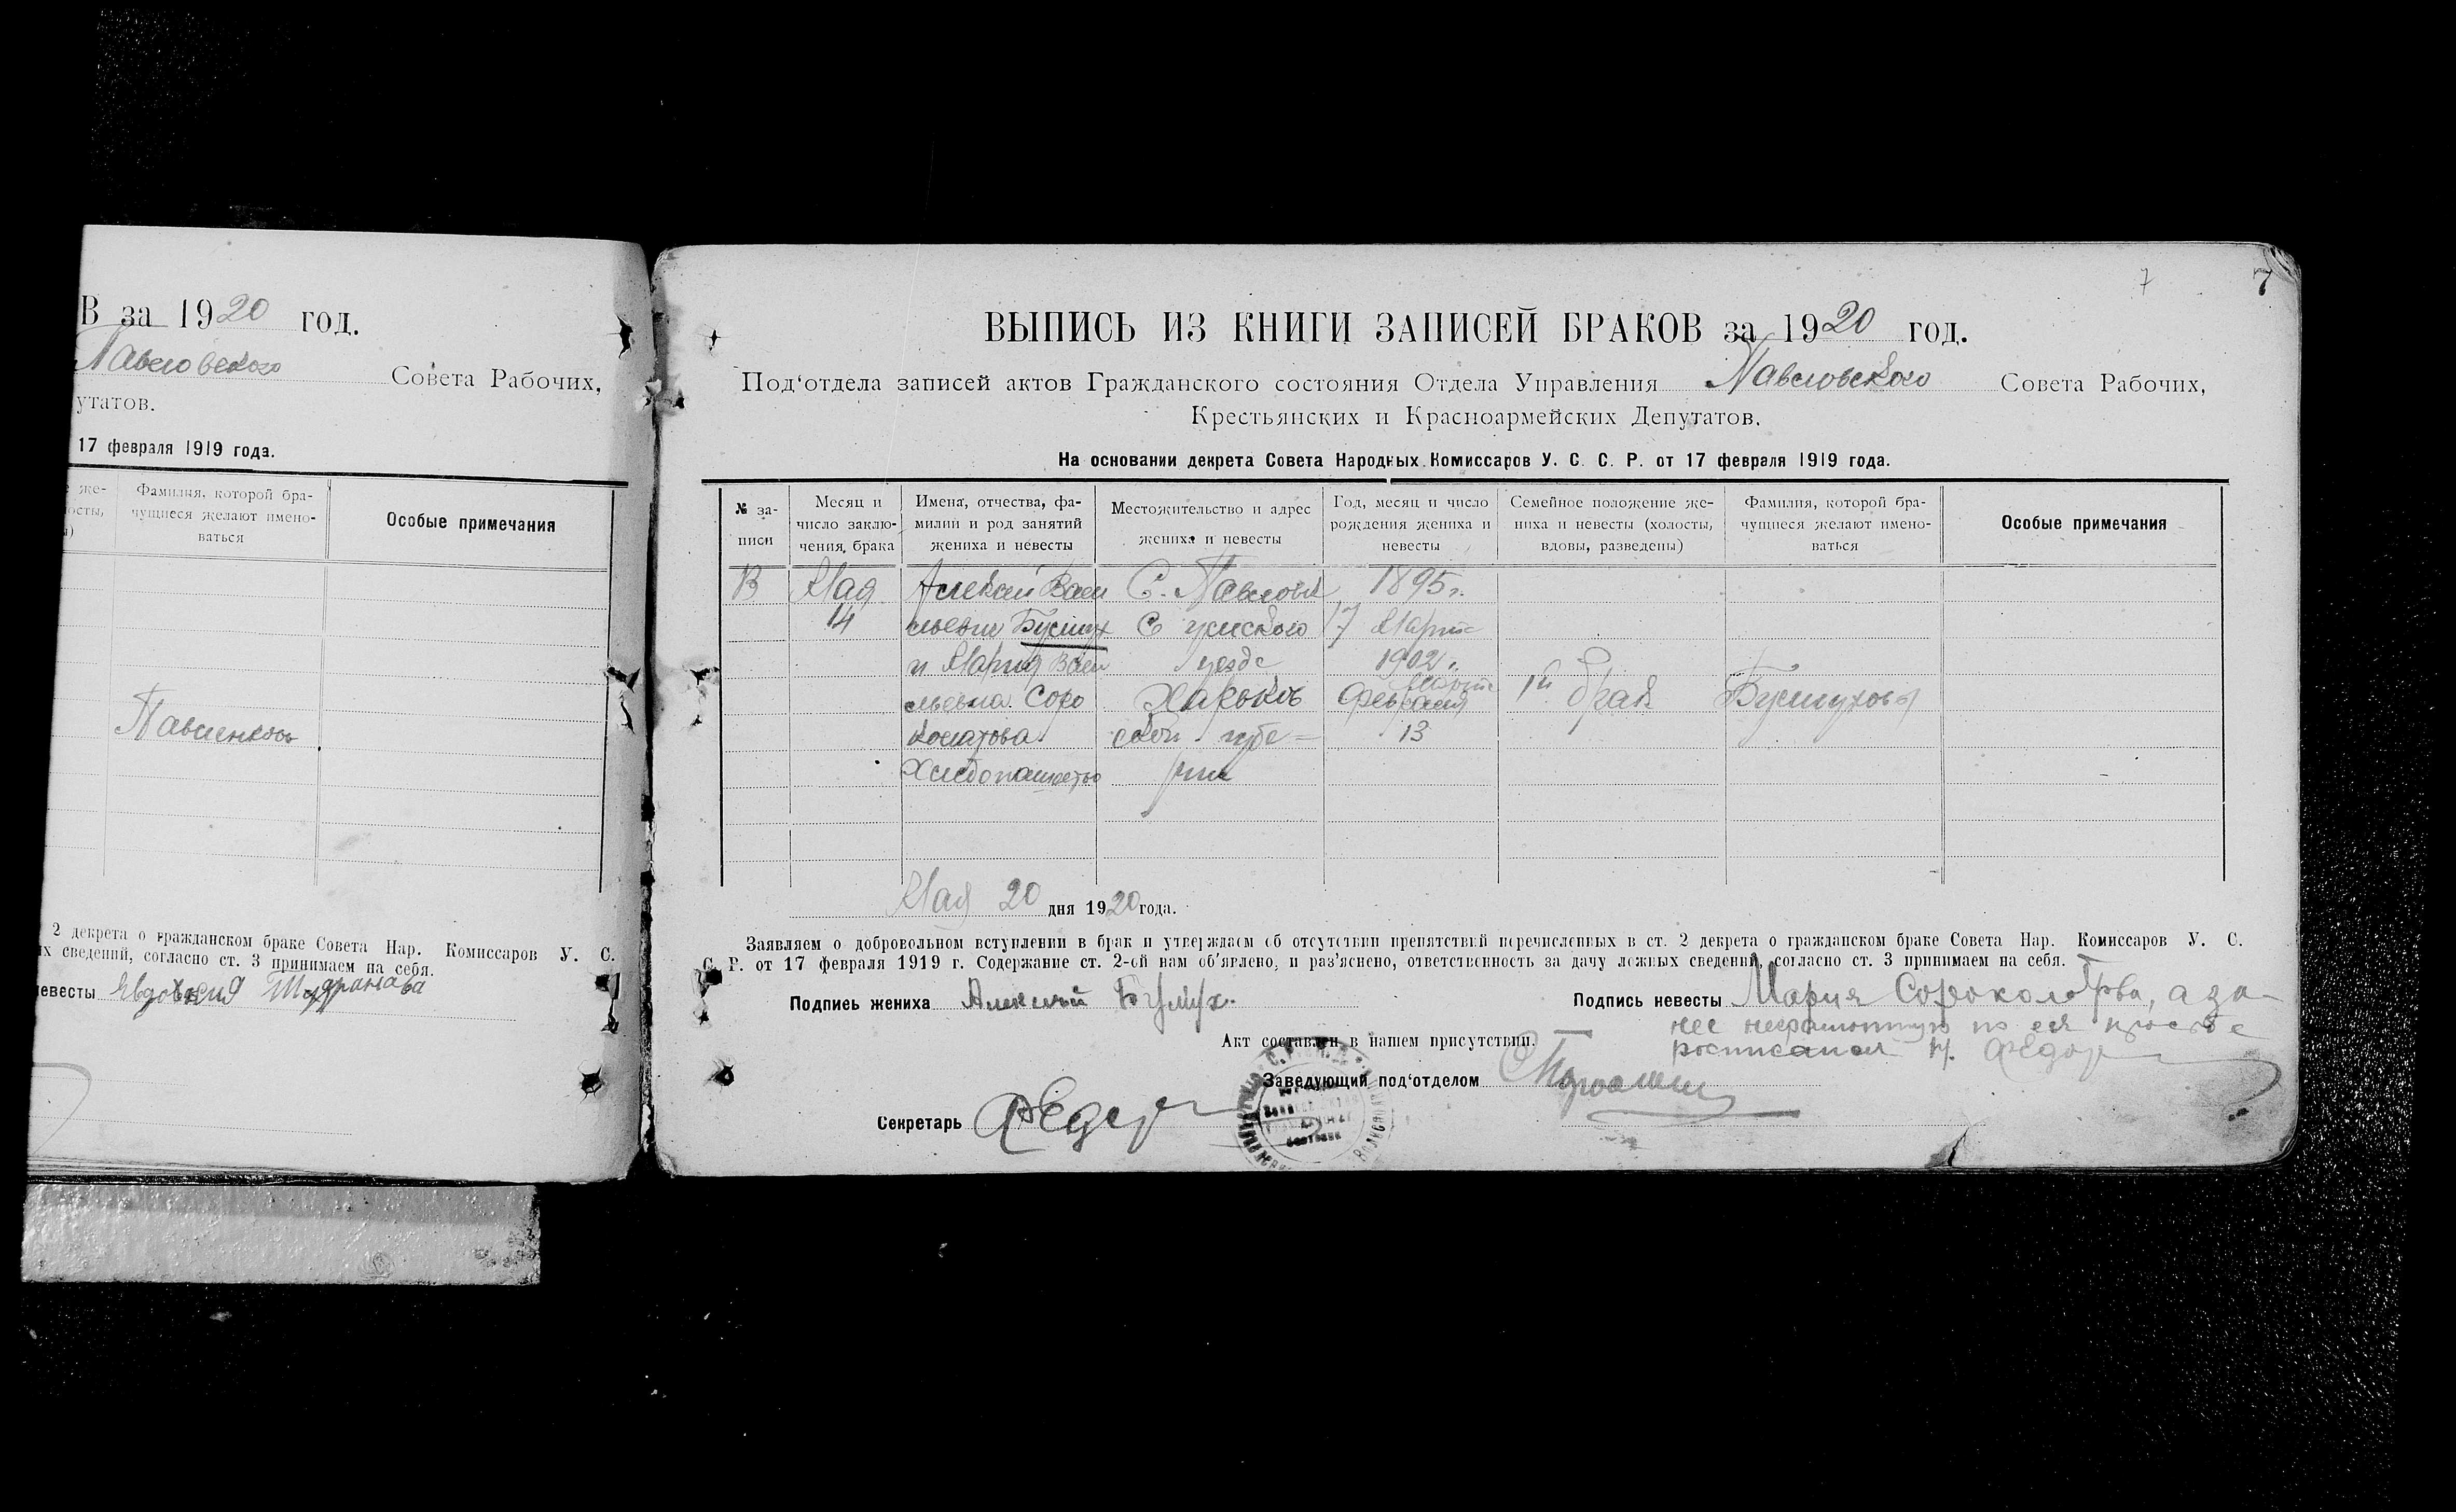 В за 1920 год.
Павловского Совета Рабочих,
утатов.
17 февраля 1919 года.
же-
ости,
Фамилия, которой бра-
чущиеся желают имено-
ваться
Особые примечания
Павленковы
2 декрета о гражданском браке Совета Нар. Комиссаров У. С.
их сведений, согласно ст. 3 принимаем на себя.
невесты Явдокия
7
7
ВЫПИСЬ ИЗ КНИГИ ЗАПИСЕЙ БРАКОВ за 1920 год.
Под‘отдела записей актов Гражданского состояния Отдела Управления Павловского Совета Рабочих,
Крестьянских и Красноармейских Депутатов.
На основании декрета Совета Народных Комиссаров У. С. С. Р. от 17 февраля 1919 года.
№ за-
писи
Месяц и
число заклю-
чения, брака
Имена, отчества, фа-
милии и род занятий
жениха и невесты
Местожительство и адрес
жениха и невесты
Год, месяц и число
рождения жениха и
невесты
Семейное положение же-
ниха и невесты (холосты,
вдовы, разведены)
Фамилия, которой бра-
чущиеся желают имено-
ваться
Особые примечания
13
Мая
14
Алексей Васи
льевич Буслух
и Мария Васи
льевна Соро
колатова
Хлебопашество
С. Павловк
Сумского
уезда
Харьков
ской губе=
рнии
1895 г.
17 Марта
1902 г.
Марта
Февраля
13
1й брак
Буслуховы
Мая 20 дня 1920 года.
Заявляем о добровольном вступлении в брак и утверждаем об отсутствии препятствий перечисленных в ст. 2 декрета о гражданском браке Совета Нар. Комиссаров У. С.
С. Р. от 17 февраля 1919 г. Содержание ст. 2-ой нам об‘явлено, и раз‘яснено, ответственность за дачу ложных сведений, согласно ст. 3 принимаем на себя.
Подпись жениха Алексей
Подпись невесты Мария Сороколатова, а за
нее неграмотную по ея просьбе
росписался
Акт составлен в нашем присутствии.
Заведующий под‘отделом
Секретарь